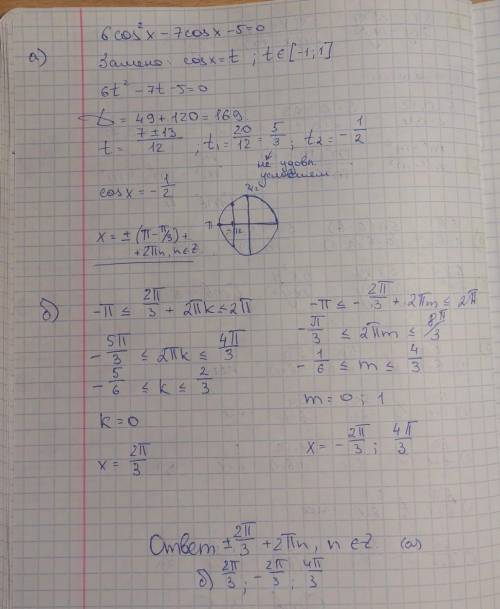 6cos²x - 7cosx - 5 = 0
а) Замена: cosx = t ; t ∈ [-1; 1]
6t² - 7t - 5 = 0
D = 49 + 120 = 169
t = (7 ± 13)/12 ; t₁ = 20/12 = 5/3 ; t₂ = -1/2
не удовл. условием
cosx = -1/2
π/2
π
-1/2
x = ± (π - π/3) +
+ 2πn, n ∈ Z
б) -π ≤ 2π/3 + 2πk ≤ 2π
-5π/3 ≤ 2πk ≤ 4π/3
-5/6 ≤ k ≤ 2/3
k = 0
x = 2π/3
-π ≤ -2π/3 + 2πm ≤ 2π
-π/3 ≤ 2πm ≤ 8π/3
-1/6 ≤ m ≤ 4/3
m = 0 ; 1
x = -2π/3 ; 4π/3
Ответ ± 2π/3 + 2πn, n ∈ Z (а)
б) 2π/3 ; -2π/3 ; 4π/3